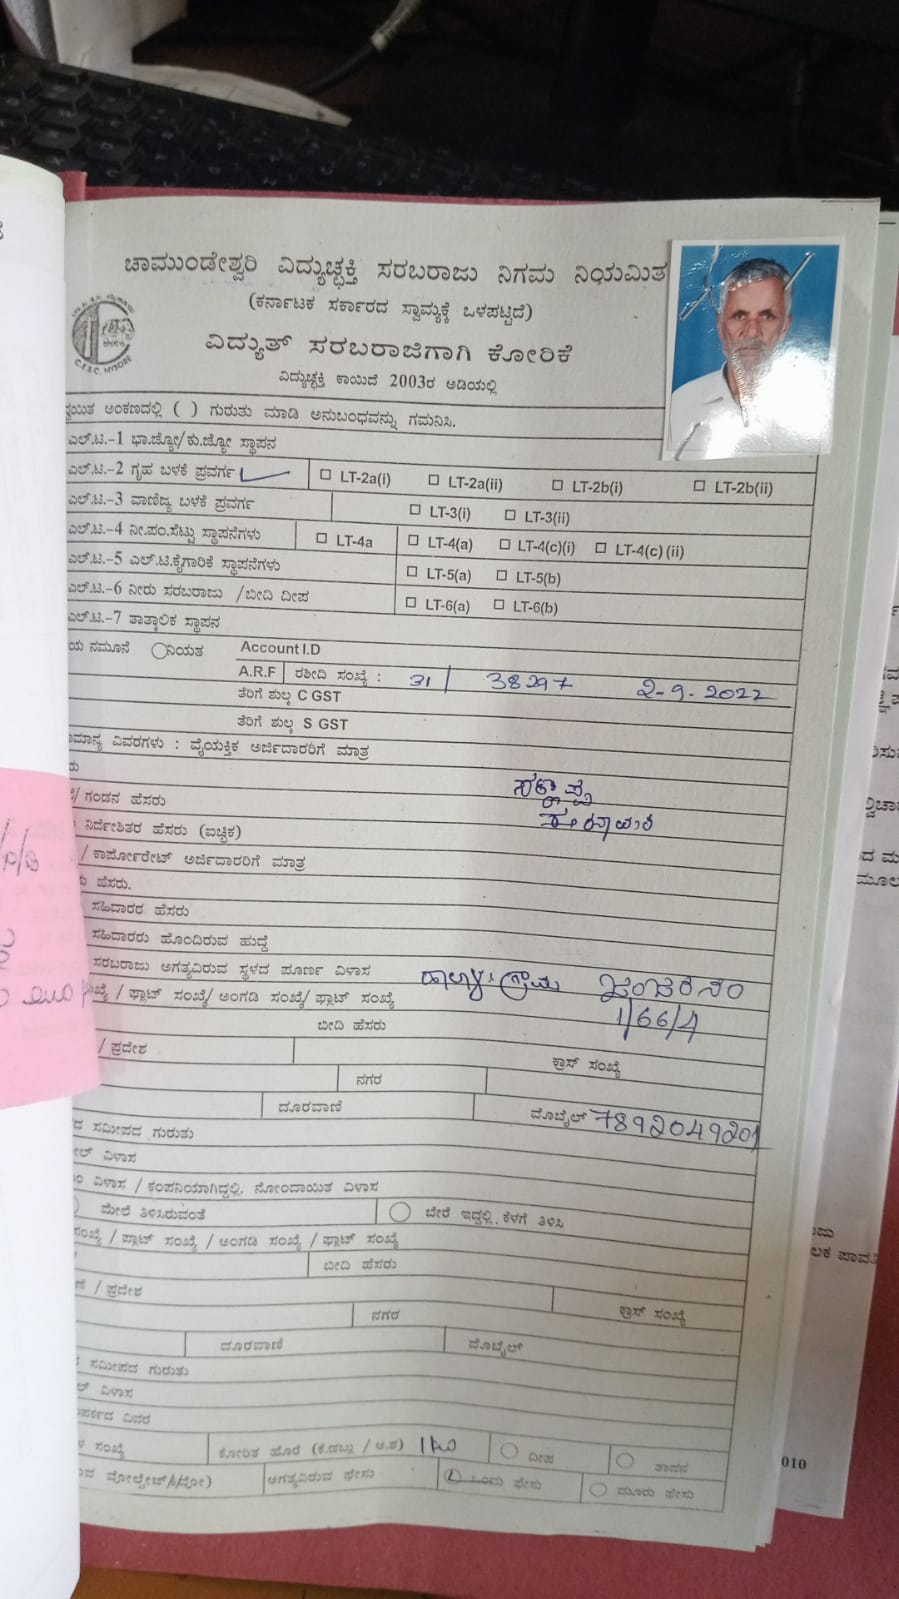 ಚಾಮುಂಡೇಶ್ವರಿ ವಿದ್ಯುಚ್ಛಕ್ತಿ ಸರಬರಾಜು ನಿಗಮ ನಿಯಮಿತ
(ಕರ್ನಾಟಕ ಸರ್ಕಾರದ ಸ್ವಾಮ್ಯಕ್ಕೆ ಒಳಪಟ್ಟಿದೆ)
C.E.S.C. MYSORE
ವಿದ್ಯುತ್ ಸರಬರಾಜಿಗಾಗಿ ಕೋರಿಕೆ
ವಿದ್ಯುಚ್ಛಕ್ತಿ ಕಾಯಿದೆ 2003ರ ಅಡಿಯಲ್ಲಿ
ಅಂಕಣದಲ್ಲಿ ( ) ಗುರುತು ಮಾಡಿ ಅನುಬಂಧವನ್ನು ಗಮನಿಸಿ.
ಎಲ್.ಟಿ.-1 ಭಾ.ಜ್ಯೋ/ಕು.ಜ್ಯೋ ಸ್ಥಾಪನ
ಎಲ್.ಟಿ.-2 ಗೃಹ ಬಳಕೆ ಪ್ರವರ್ಗ LT-2a(i) LT-2a(ii) LT-2b(i) LT-2b(ii)
ಎಲ್.ಟಿ.-3 ವಾಣಿಜ್ಯ ಬಳಕೆ ಪ್ರವರ್ಗ LT-3(i) LT-3(ii)
ಎಲ್.ಟಿ.-4 ನೀ.ಪಂ.ಸೆಟ್ಟು ಸ್ಥಾಪನೆಗಳು LT-4a LT-4(a) LT-4(c)(i) LT-4(c)(ii)
ಎಲ್.ಟಿ.-5 ಎಲ್.ಟಿ.ಕೈಗಾರಿಕೆ ಸ್ಥಾಪನೆಗಳು LT-5(a) LT-5(b)
ಎಲ್.ಟಿ.-6 ನೀರು ಸರಬರಾಜು /ಬೀದಿ ದೀಪ LT-6(a) LT-6(b)
ಎಲ್.ಟಿ.-7 ತಾತ್ಕಾಲಿಕ ಸ್ಥಾಪನ
ನಮೂನೆ ನಿಯತ Account I.D
A.R.F ರಶೀದಿ ಸಂಖ್ಯೆ : 31 38297 2-9-2022
ತೆರಿಗೆ ಶುಲ್ಕ C GST
ತೆರಿಗೆ ಶುಲ್ಕ S GST
ವಿವರಗಳು : ವೈಯಕ್ತಿಕ ಅರ್ಜಿದಾರರಿಗೆ ಮಾತ್ರ
/ಗಂಡನ ಹೆಸರು
ನಿರ್ದೇಶಿತರ ಹೆಸರು (ಐಚ್ಛಿಕ)
/ ಕಾರ್ಪೋರೇಟ್ ಅರ್ಜಿದಾರರಿಗೆ ಮಾತ್ರ
ಹೆಸರು.
ಸಹಿದಾರರ ಹೆಸರು
ಸಹಿದಾರರು ಹೊಂದಿರುವ ಹುದ್ದೆ
ಸರಬರಾಜು ಅಗತ್ಯವಿರುವ ಸ್ಥಳದ ಪೂರ್ಣ ವಿಳಾಸ ಗ್ರಾಮ
/ ಫ್ಲಾಟ್ ಸಂಖ್ಯೆ/ ಅಂಗಡಿ ಸಂಖ್ಯೆ/ ಫ್ಲಾಟ್ ಸಂಖ್ಯೆ 1/66/4
ಬೀದಿ ಹೆಸರು
/ ಪ್ರದೇಶ ಕ್ರಾಸ್ ಸಂಖ್ಯೆ
ನಗರ
ದೂರವಾಣಿ ಮೊಬೈಲ್ 7892049201
ಸಮೀಪದ ಗುರುತು
ವಿಳಾಸ
ವಿಳಾಸ / ಕಂಪನಿಯಾಗಿದ್ದಲ್ಲಿ, ನೋಂದಾಯಿತ ವಿಳಾಸ
ಮೇಲೆ ತಿಳಿಸಿರುವಂತೆ ಬೇರೆ ಇದ್ದಲ್ಲಿ, ಕೆಳಗೆ ತಿಳಿಸಿ
/ ಪ್ಲಾಟ್ ಸಂಖ್ಯೆ / ಅಂಗಡಿ ಸಂಖ್ಯೆ / ಫ್ಲಾಟ್ ಸಂಖ್ಯೆ
ಬೀದಿ ಹೆಸರು
/ ಪ್ರದೇಶ ಕ್ರಾಸ್ ಸಂಖ್ಯೆ
ನಗರ
ದೂರವಾಣಿ ಮೊಬೈಲ್
ಸಮೀಪದ ಗುರುತು
ವಿಳಾಸ
ವಿವರ
ಸಂಖ್ಯೆ ಕೋರಿತ ಹೊರೆ ದೀಪ ತಾಪನ
ಅಗತ್ಯವಿರುವ ಫೇಸು ಒಂದು ಫೇಸು ಮೂರು ಫೇಸು
010